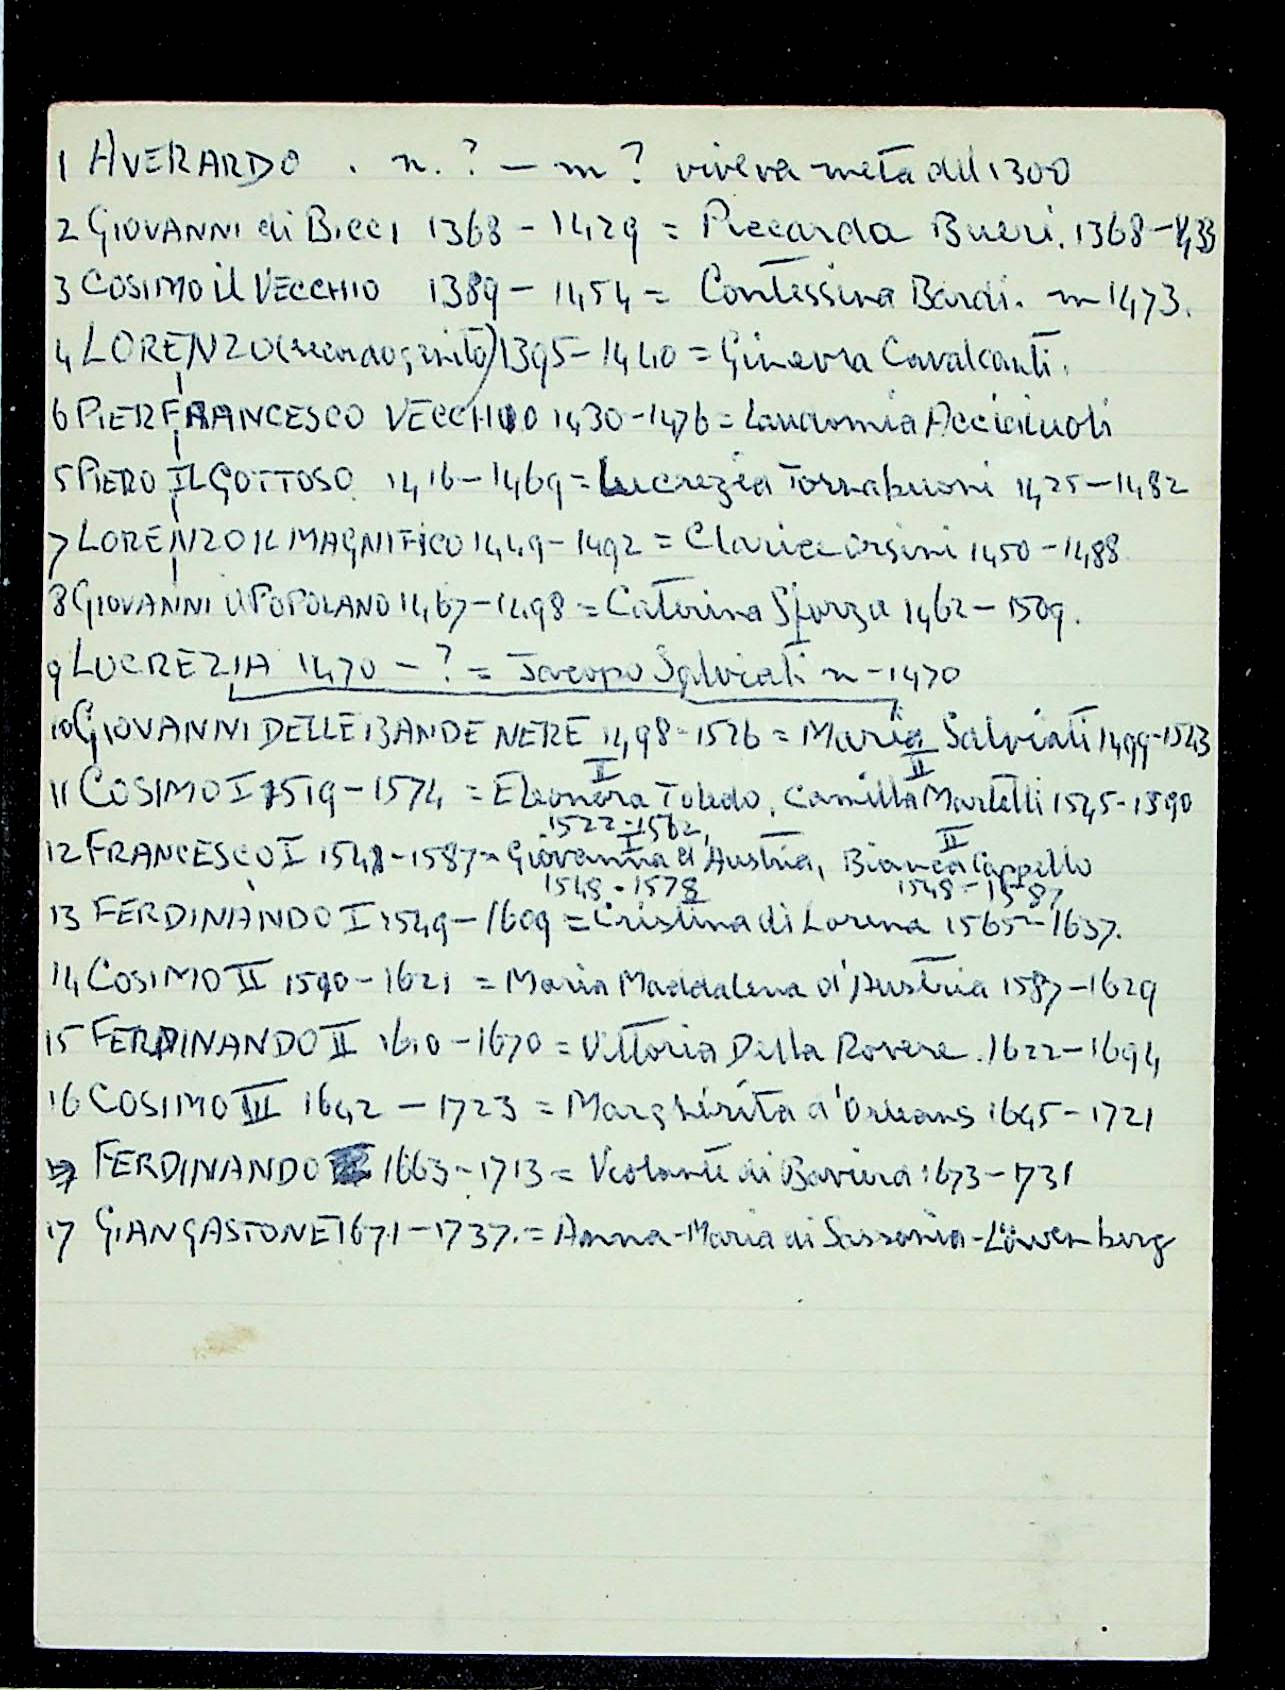 1 AVERARDO . n. ? — m ? viveva metà del 1300
2 GIOVANNI di Bicci 1368 - 1429 = Piccarda Bueri. 1368-1433
3 COSIMO il VECCHIO 1389 - 1454 = Contessina Bardi. m 1473.
4 LORENZO (secondogenito) 1395-1440 = Ginevra Cavalcanti.
6 PIERFRANCESCO VECCHIO 1430-1476 = Laudomia Acciaiuoli
5 PIERO IL GOTTOSO 1416-1469 = Lucrezia Tornabuoni 1425-1482
7 LORENZO IL MAGNIFICO 1449-1492 = Clarice Orsini 1450-1488
8 GIOVANNI il POPOLANO 1467-1498 = Caterina Sforza 1462-1509.
9 LUCREZIA 1470 - ? = Jacopo Salviati n-1470
10 GIOVANNI DELLE BANDE NERE 1498-1526 = Maria Salviati 1499-1543
I II
11 COSIMO I 1519-1574 = Eleonora Toledo, Camilla Martelli 1545-1590
1522-1562,
I II
12 FRANCESCO I 1548-1587 = Giovanna d'Austria, Bianca Cappello
1548-1578 1548-1587
13 FERDINANDO I 1549-1609 = Cristina di Lorena 1565-1637.
14 COSIMO II 1590-1621 = Maria Maddalena d'Austria 1587-1629
15 FERDINANDO II 1610-1670 = Vittoria Della Rovere. 1622-1694
16 COSIMO III 1642-1723 = Margherita d'Orleans 1645-1721
FERDINANDO 1663-1713 = Violante di Baviera 1673-1731
17 GIANGASTONE 1671-1737. = Anna-Maria di Sassonia-Löwenburg